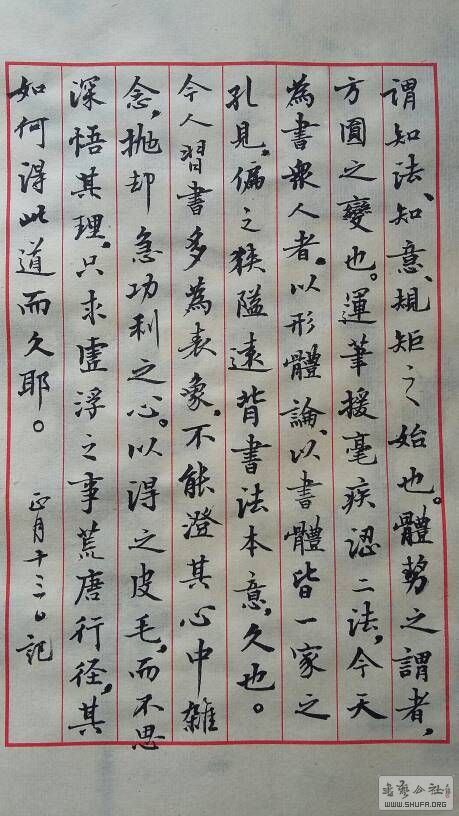 謂知法、知意、規矩之始也。體勢之謂者，
方圓之變也。運筆援毫疾認二法，今天
為書衆人者。以形體論、以書體皆一家之
孔見，偏之狹隘遠背書法本意，久也。
今人習書多為表象。不能澄其心中雜
念，拋却急功利之心。以得之皮毛，而不思
深悟其理。只求虛浮之事荒唐行径，其
如何得此道而久耶。
正月十三日記
書藝公社
WWW.SHUFA.ORG